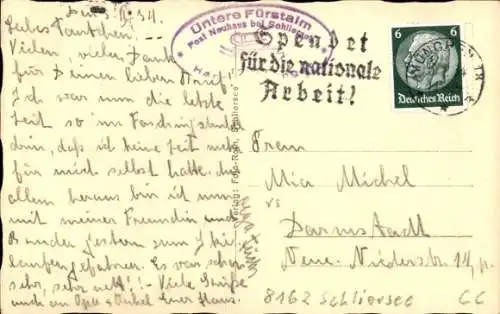 Den 3. II. 34.
Liebes Tantchen! --
Vielen, vielen Dank
für Deinen lieben Brief!
Ich war nun die letzte
Zeit so im Faschingstrubel
drin, daß ich keine Zeit mehr
für mich selbst hatte.
allem heraus bin ich nun
mit meiner Freundin und
Bruder gestern zum Ski
laufen gefahren. Es war schon
sehr, sehr nett! - Viele Grüße
auch an Opa + Onkel Euer Hans.
Untere Fürstalm
Post Neuhaus bei Schliersee
Spendet
für die nationale
Arbeit!
MÜNCHEN 18
6 6
Deutsches Reich
Verlag: Foto-Roth, Schliersee
Frau
Mia Michel
Darmstadt
Neue Niederstr. 14, p.
8162 Schliersee
CC